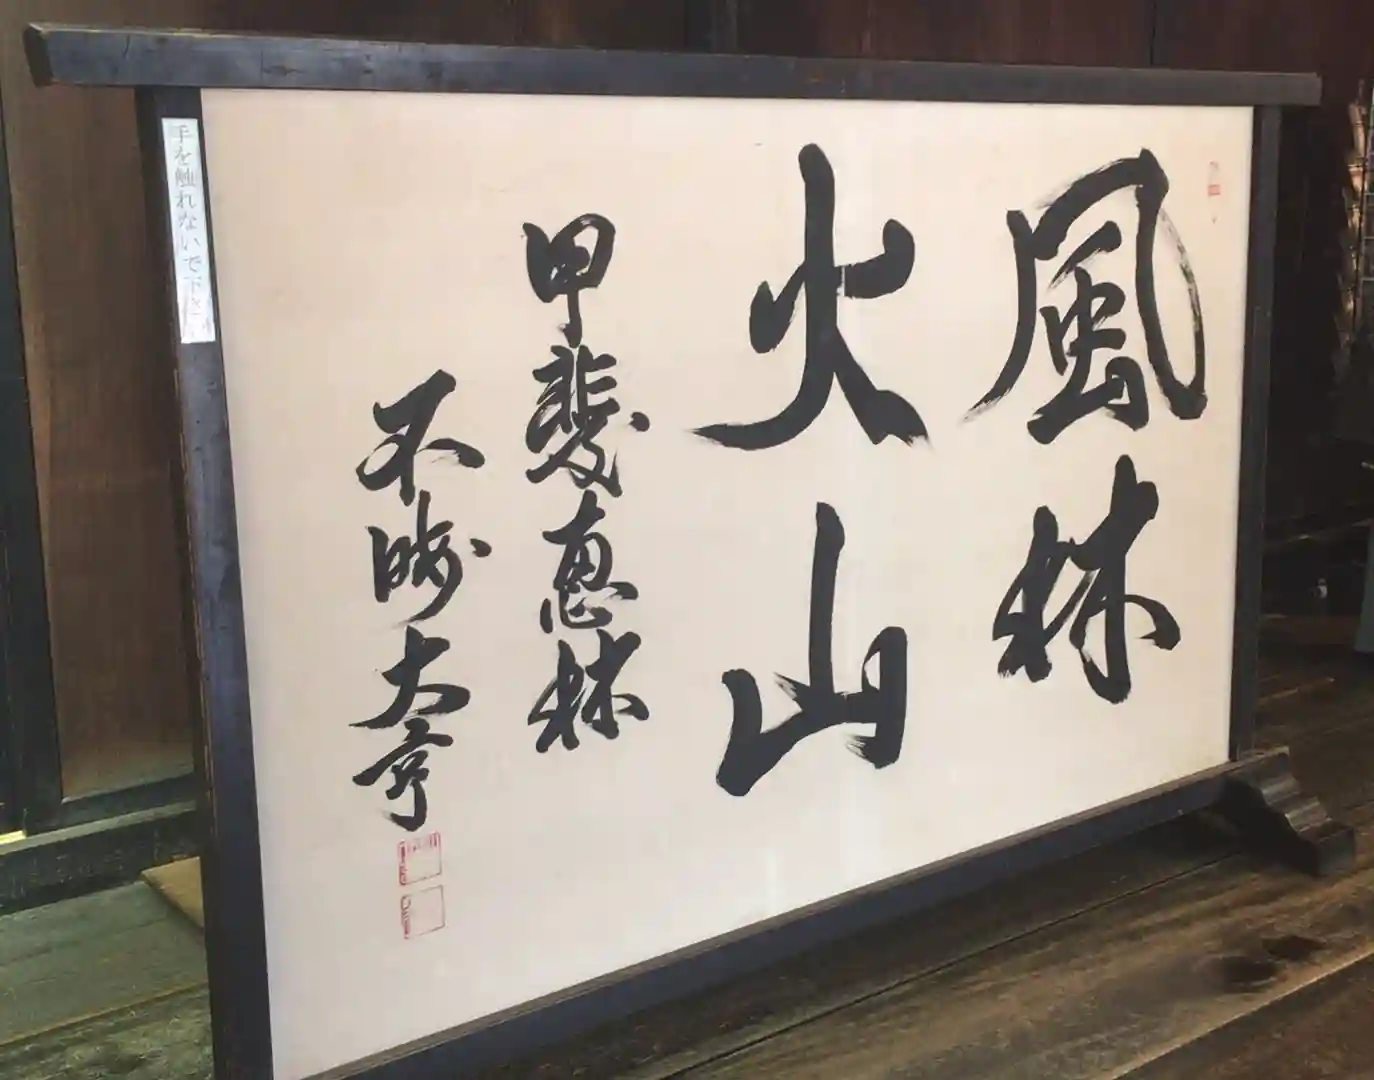 風林
火山
甲斐恵林
不晴大亨
手を触れないで下さい